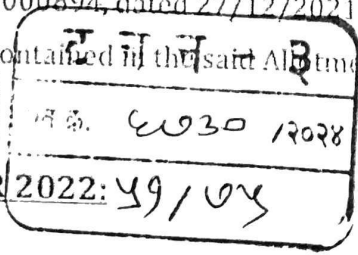 000894, dated 27/12/2021
ontained in the said Allotme
ट न न - ३
६७३० /२०२४
2022: ५१/७५